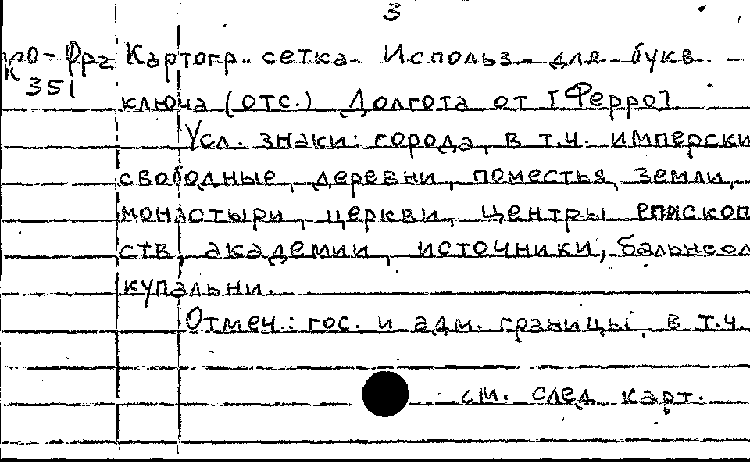 3
Ко-Фрг Картогр. сетка. Использ. для букв.
К 351
ключа (отс.) Долгота от [Ферро].
Усл. знаки: города, в т.ч. имперски
свободные, деревни, поместья, земли,
монастыри, церкви, центры епископ
ств, академии, источники, бальнеол
купальни.
Отмеч.: гос. и адм. границы, в т.ч.
см. след. карт.